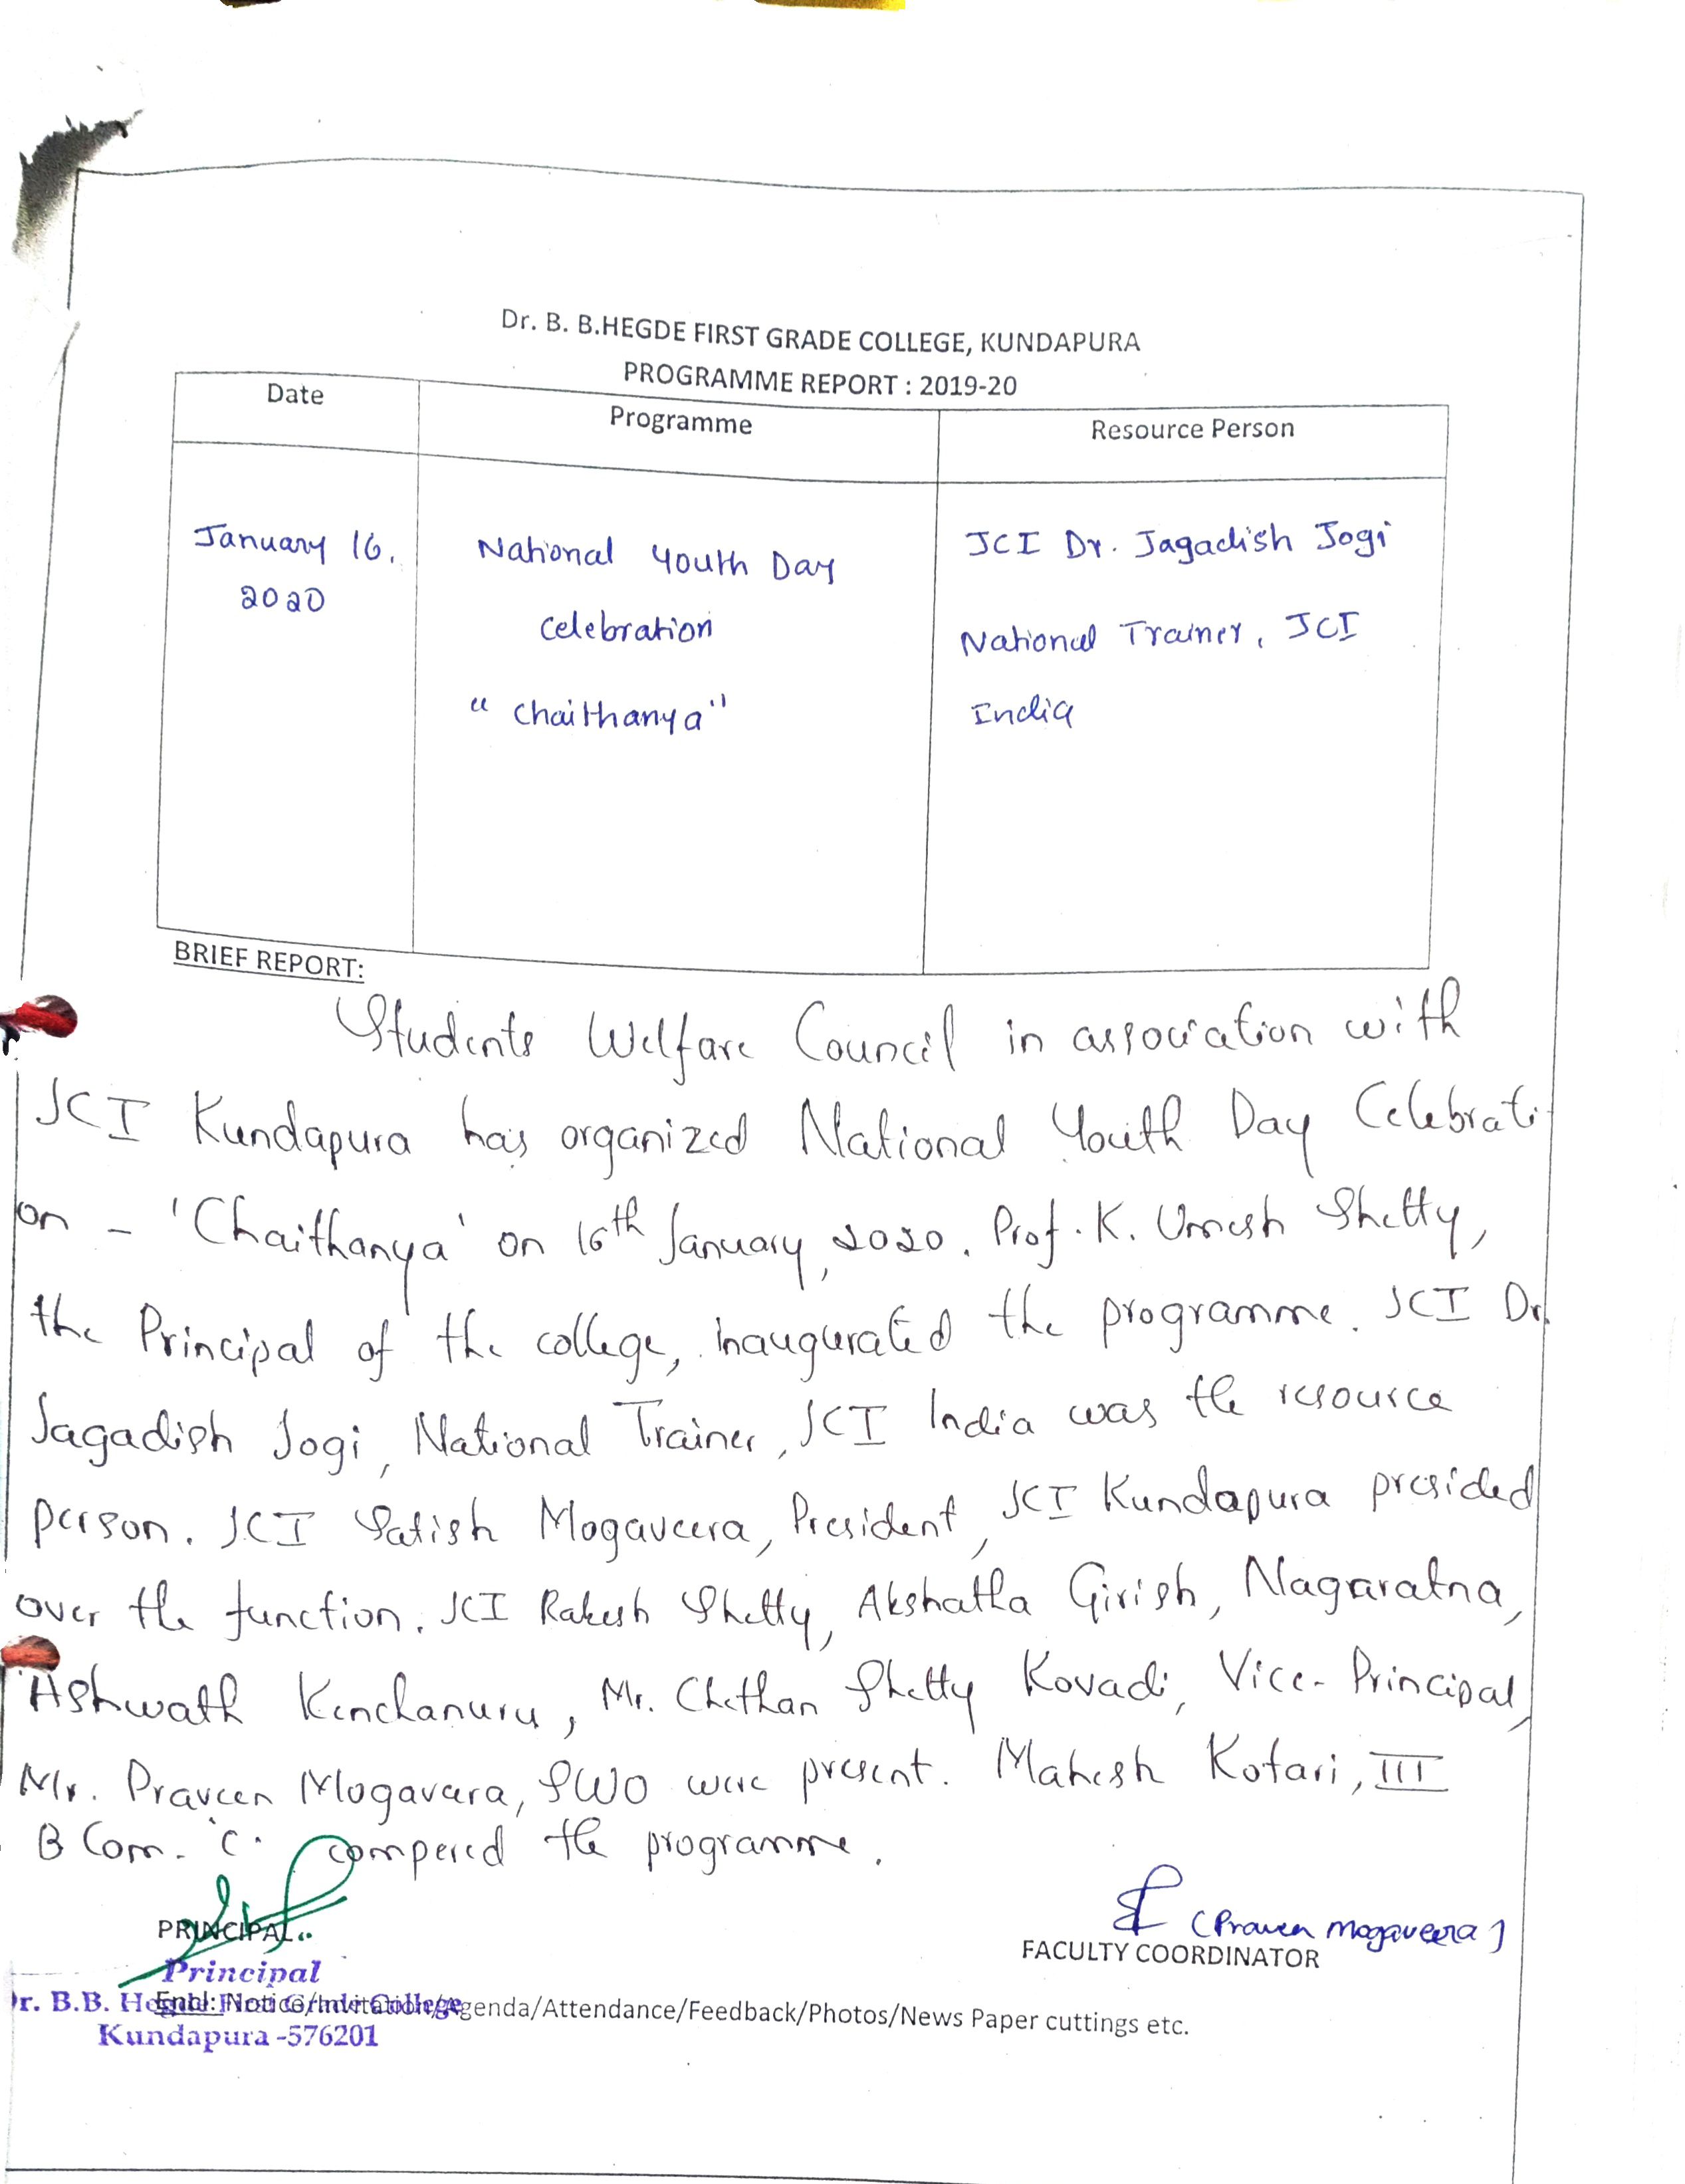 Dr. B. B.HEGDE FIRST GRADE COLLEGE, KUNDAPURA
PROGRAMME REPORT : 2019-20
Date
Programme
Resource Person
January 16,
2020
National Youth Day
Celebration
"Chaithanya"
JCI Dr. Jagadish Jogi
National Trainer, JCI
India
BRIEF REPORT:
Students Welfare Council in association with
JCI Kundapura has organized National Youth Day Celebrati-
on - 'Chaithanya' on 16th January, 2020. Prof. K. Umesh Shetty,
the Principal of the college, inaugurated the programme. JCI Dr.
Jagadish Jogi, National Trainer, JCI India was the resource
person. JCI Satish Mogaveera, President, JCI Kundapura presided
over the function. JCI Rakesh Shetty, Akshatha Girish, Nagaratna,
Ashwath Kenchanuru, Mr. Chethan Shetty Kovadi, Vice-Principal,
Mr. Praveen Mogavera, SWO were present. Mahesh Kotari, III
B Com. 'C' compered the programme.
PRINCIPAL
(Praveen Mogaveera)
FACULTY COORDINATOR
Principal
Dr. B.B. Hegde First Grade College
Kundapura -576201
Encl: Notice/Invitation/Agenda/Attendance/Feedback/Photos/News Paper cuttings etc.